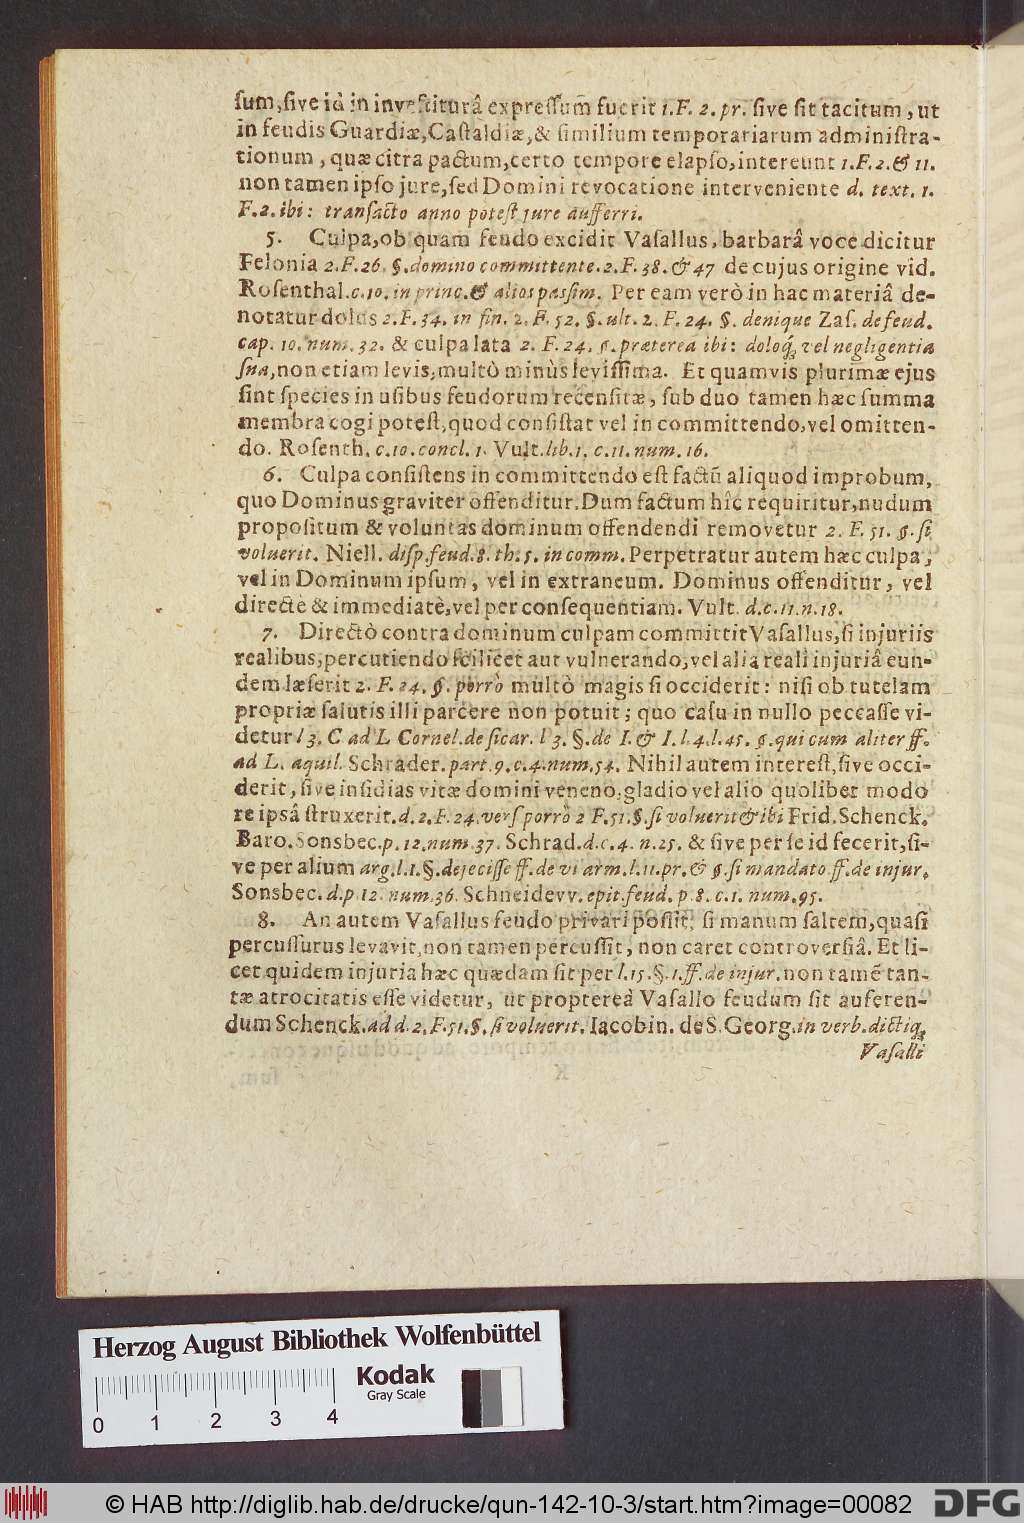 ſum, ſive id in inveſtiturâ expreſſum fuerit 1. F. 2. pr. ſive ſit tacitum, ut
in feudis Guardiæ, Caſtaldiæ, & ſimilium temporariarum adminiſtra-
tionum, quæ citra pactum, certo tempore elapſo, intereunt 1. F. 2. & 11.
non tamen ipſo jure, ſed Domini revocatione interveniente d. text. 1.
F. 2. ibi: tranſacto anno poteſt jure aufferri.
5. Culpa, ob quam feudo excidit Vaſallus, barbarâ voce dicitur
Felonia 2. F. 26. §. domino committente. 2. F. 38. & 47 de cujus origine vid.
Roſenthal. c. 10. in princ. & alios paſſim. Per eam verò in hac materiâ de-
notatur dolus 2. F. 34. in fin. 2. F. 52. §. ult. 2. F. 24. §. denique Zaſ. de feud.
cap. 10. num. 32. & culpa lata 2. F. 24. §. præterea ibi: doloq́; vel negligentia
ſua, non etiam levis, multò minùs leviſſima. Et quamvis plurimæ ejus
ſint ſpecies in uſibus feudorum recenſitæ, ſub duo tamen hæc ſumma
membra cogi poteſt, quod conſiſtat vel in committendo, vel omitten-
do. Roſenth. c. 10. concl. 1. Vult. lib. 1. c. 11. num. 16.
6. Culpa conſiſtens in committendo eſt factū aliquod improbum,
quo Dominus graviter offenditur. Dum factum hîc requiritur, nudum
propoſitum & voluntas dominum offendendi removetur 2. F. 51. §. ſi
voluerit. Niell. diſp. feud. 8. th. 5. in comm. Perpetratur autem hæc culpa,
vel in Dominum ipſum, vel in extraneum. Dominus offenditur, vel
directè & immediatè, vel per conſequentiam. Vult. d. c. 11. n. 18.
7. Directò contra dominum culpam committit Vaſallus, ſi injuriis
realibus, percutiendo ſcilicet aut vulnerando, vel alia reali injuriâ eun-
dem læſerit 2. F. 24. §. porrò multò magis ſi occiderit: niſi ob tutelam
propriæ ſalutis illi parcere non potuit; quo caſu in nullo peccaſſe vi-
detur l 3. C ad L Cornel. de ſicar. l 3. §. de I. & I. l. 4. l. 45. §. qui cum aliter ff.
ad L. aquil. Schrader. part. 9. c. 4. num. 54. Nihil autem intereſt, ſive occi-
derit, ſive inſidias vitæ domini veneno, gladio vel alio quolibet modo
re ipsâ ſtruxerit. d. 2. F. 24. verſ porrò 2 F. 51. §. ſi voluerit & ibi Frid. Schenck.
Baro. Sonsbec. p. 12. num. 37. Schrad. d. c. 4. n. 25. & ſive per ſe id fecerit, ſi-
ve per alium arg. l. 1. §. dejeciſſe ff. de vi arm. l. 11. pr. & §. ſi mandato ff. de injur.
Sonsbec. d. p 12. num. 36. Schneidevv. epit. feud. p. 8. c. 1. num. 95.
8. An autem Vaſallus feudo privari poſſit, ſi manum ſaltem, quaſi
percuſſurus levavit, non tamen percuſſit, non caret controverſiâ. Et li-
cet quidem injuria hæc quædam ſit per l. 15. §. 1. ff. de injur. non tamẽ tan-
tæ atrocitatis eſſe videtur, ut proptereà Vaſallo feudum ſit auferen-
dum Schenck. ad d. 2. F. 51. §. ſi voluerit. Iacobin. de S. Georg. in verb. dictiq́;
Vaſalli
Herzog August Bibliothek Wolfenbüttel
Kodak
Gray Scale
0 1 2 3 4
© HAB http://diglib.hab.de/drucke/qun-142-10-3/start.htm?image=00082
DFG